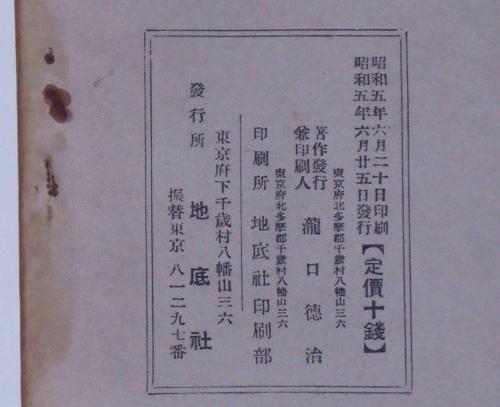 昭和五年六月二十日印刷
昭和五年六月廿五日發行
【定價十錢】
東京府北多摩郡千歲村八幡山三六
著作發行
兼印刷人 瀧口德治
東京府北多摩郡千歲村八幡山三六
印刷所 地底社印刷部
東京府下千歲村八幡山三六
發行所 地底社
振替東京 八一二九七番